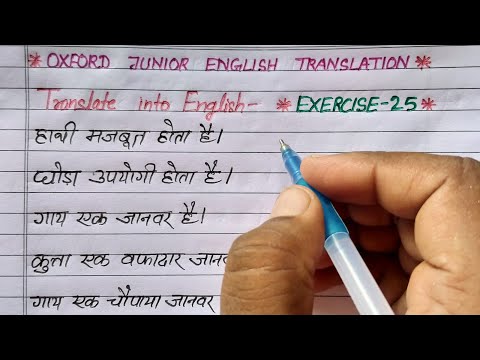 * OXFORD JUNIOR ENGLISH TRANSLATION *
Translate into English- * EXERCISE-25 *
हाथी मजबूत होता है।
घोड़ा उपयोगी होता है।
गाय एक जानवर है।
कुत्ता एक वफादार
गाय एक चौपाया जानवर